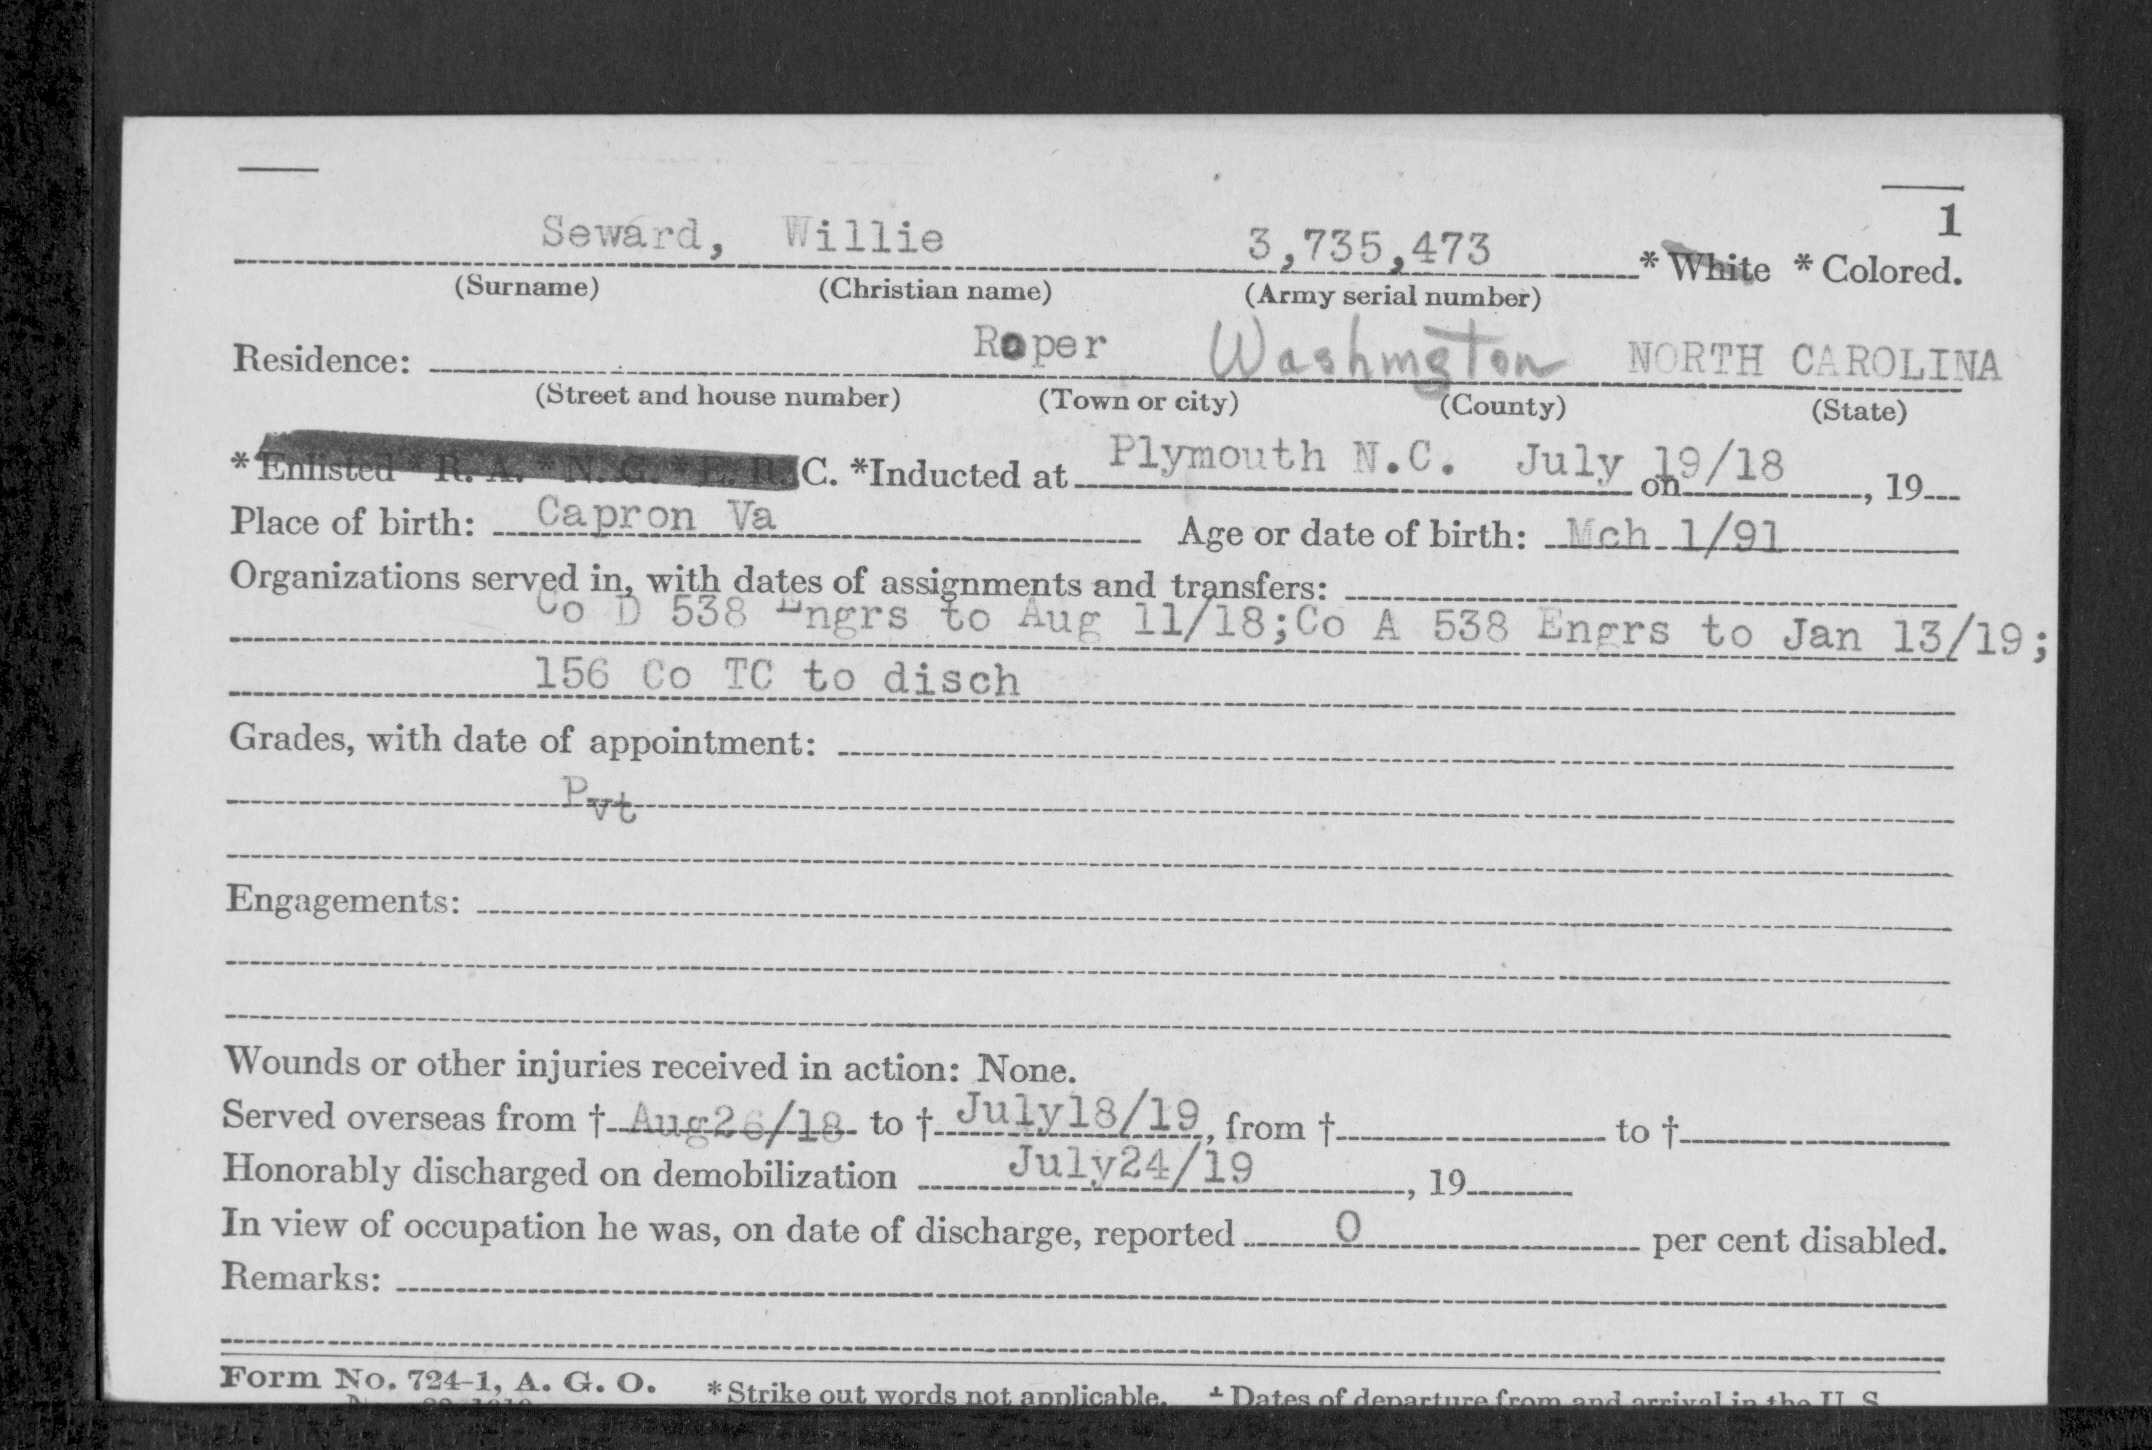 1
Seward, Willie 3,735,473 * White * Colored.
(Surname) (Christian name) (Army serial number)
Residence: Roper Washington NORTH CAROLINA
(Street and house number) (Town or city) (County) (State)
* Enlisted * R. A. * N. G. * E. R. C. *Inducted at Plymouth N.C. July on 19/18, 19
Place of birth: Capron Va Age or date of birth: Mch 1/91
Organizations served in, with dates of assignments and transfers:
Co D 538 Engrs to Aug 11/18;Co A 538 Engrs to Jan 13/19;
156 Co TC to disch
Grades, with date of appointment:
Pvt
Engagements:
Wounds or other injuries received in action: None.
Served overseas from † Aug26/18 to † July18/19, from † to †
Honorably discharged on demobilization July24/19, 19
In view of occupation he was, on date of discharge, reported 0 per cent disabled.
Remarks:
Form No. 724-1, A. G. O. * Strike out words not applicable. † Dates of departure from and arrival in the U. S.